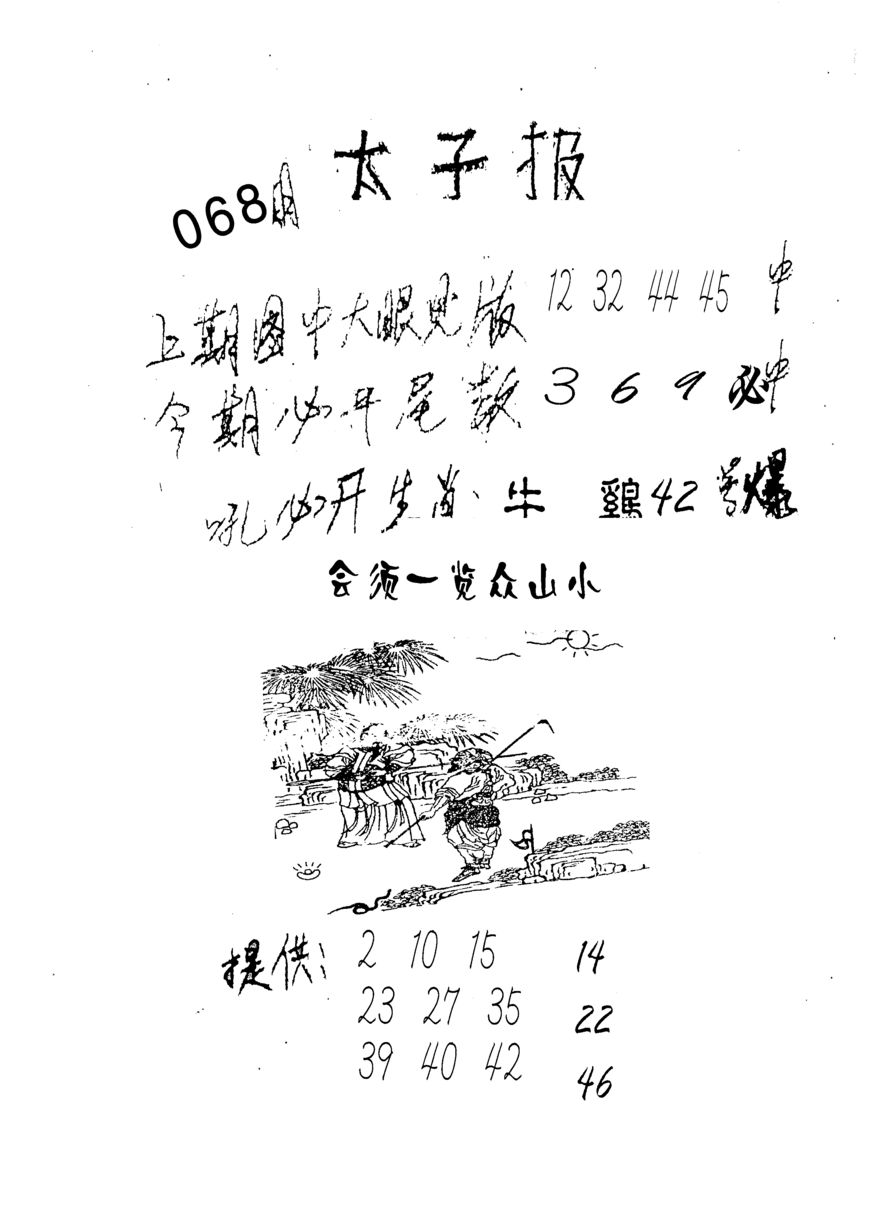 太子报
068期
上期图中大眼见版 12 32 44 45 中
今期必开尾数 3 6 9 必中
吼必开生肖、牛 鷄 42 号爆
会须一览众山小
提供: 2 10 15 14
23 27 35 22
39 40 42 46